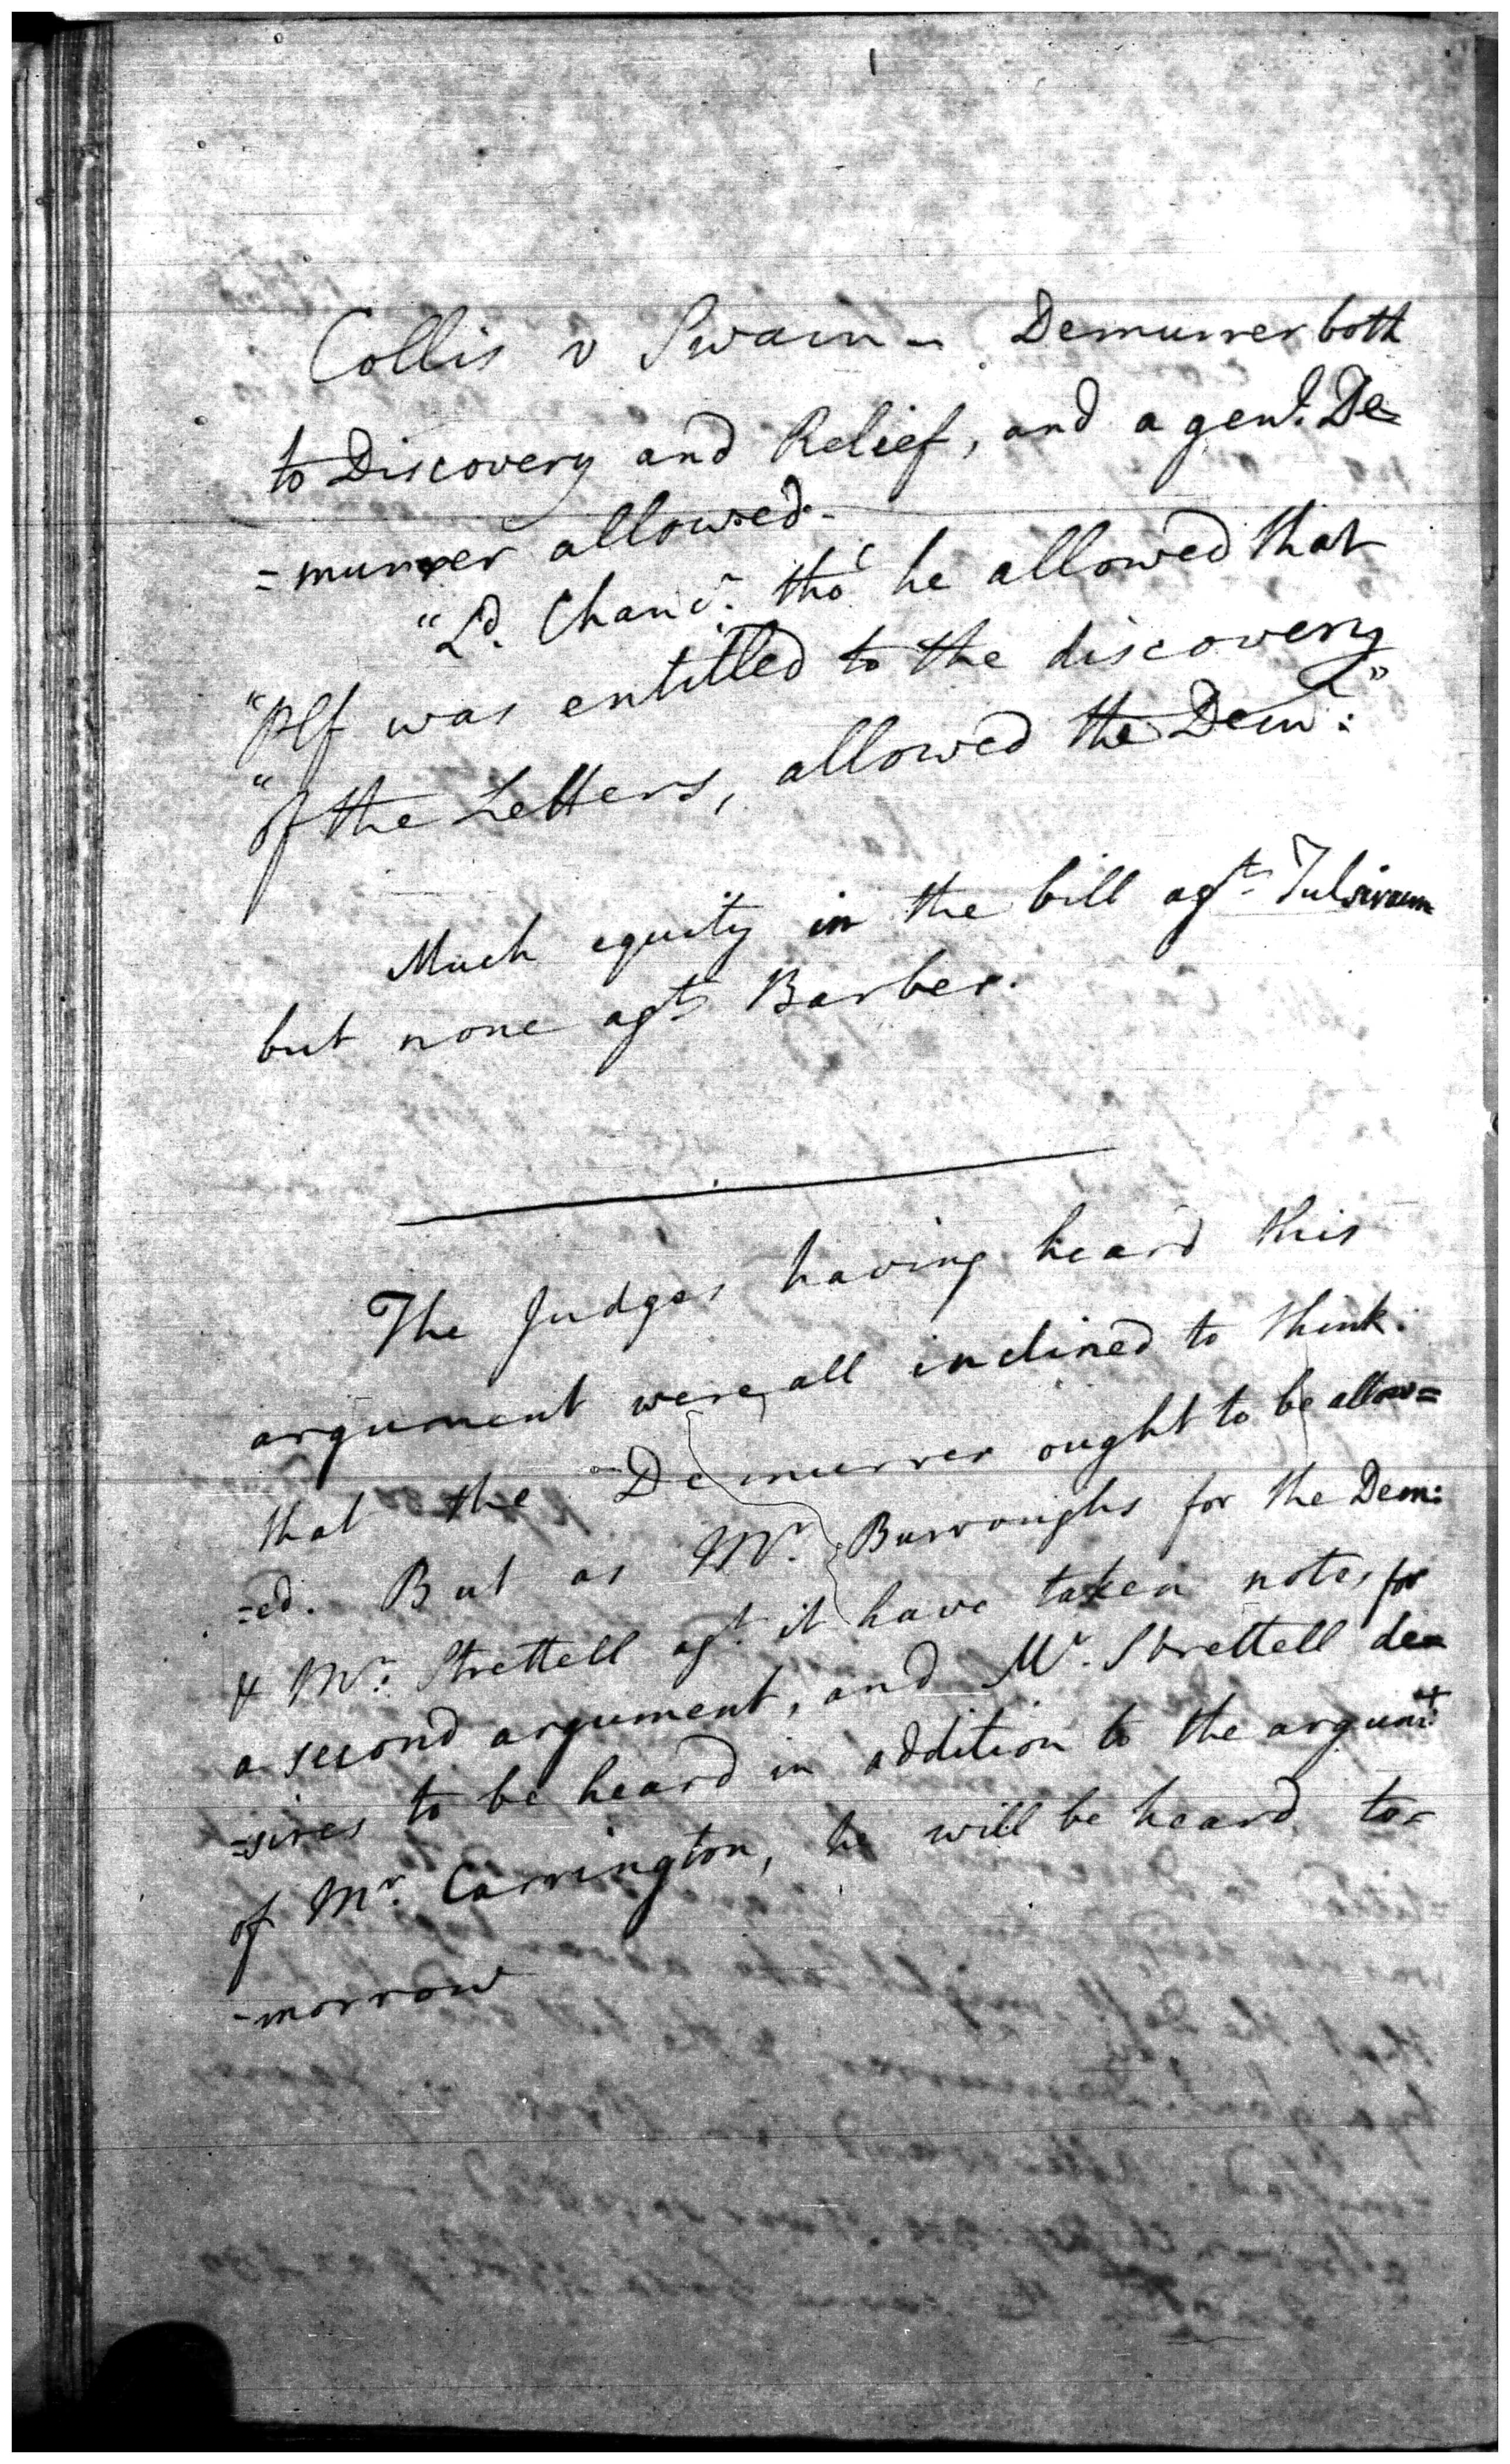 Collis v Swain - Demurrer both
to Discovery and Relief, and a genl. De=
=murrer allowed.-
"Ld. Chancr. tho' he allowed that
"Plf was entitled to the discovery
"of the Letters, allowed the Demr:"
Much equity in the bill agt. Tulsiram
but none agt. Barber.
The Judges having heard this
argument were, all inclined to think.
that the Demurrer ought to be allow=
=ed. But as Mr. Burroughs for the Dem:
& Mr. Strettell agt. it have taken notes for
a second argument, and Mr. Strettell de=
=sires to be heard in addition to the argumt.
of Mr. Carrington, he will be heard to=
-morrow